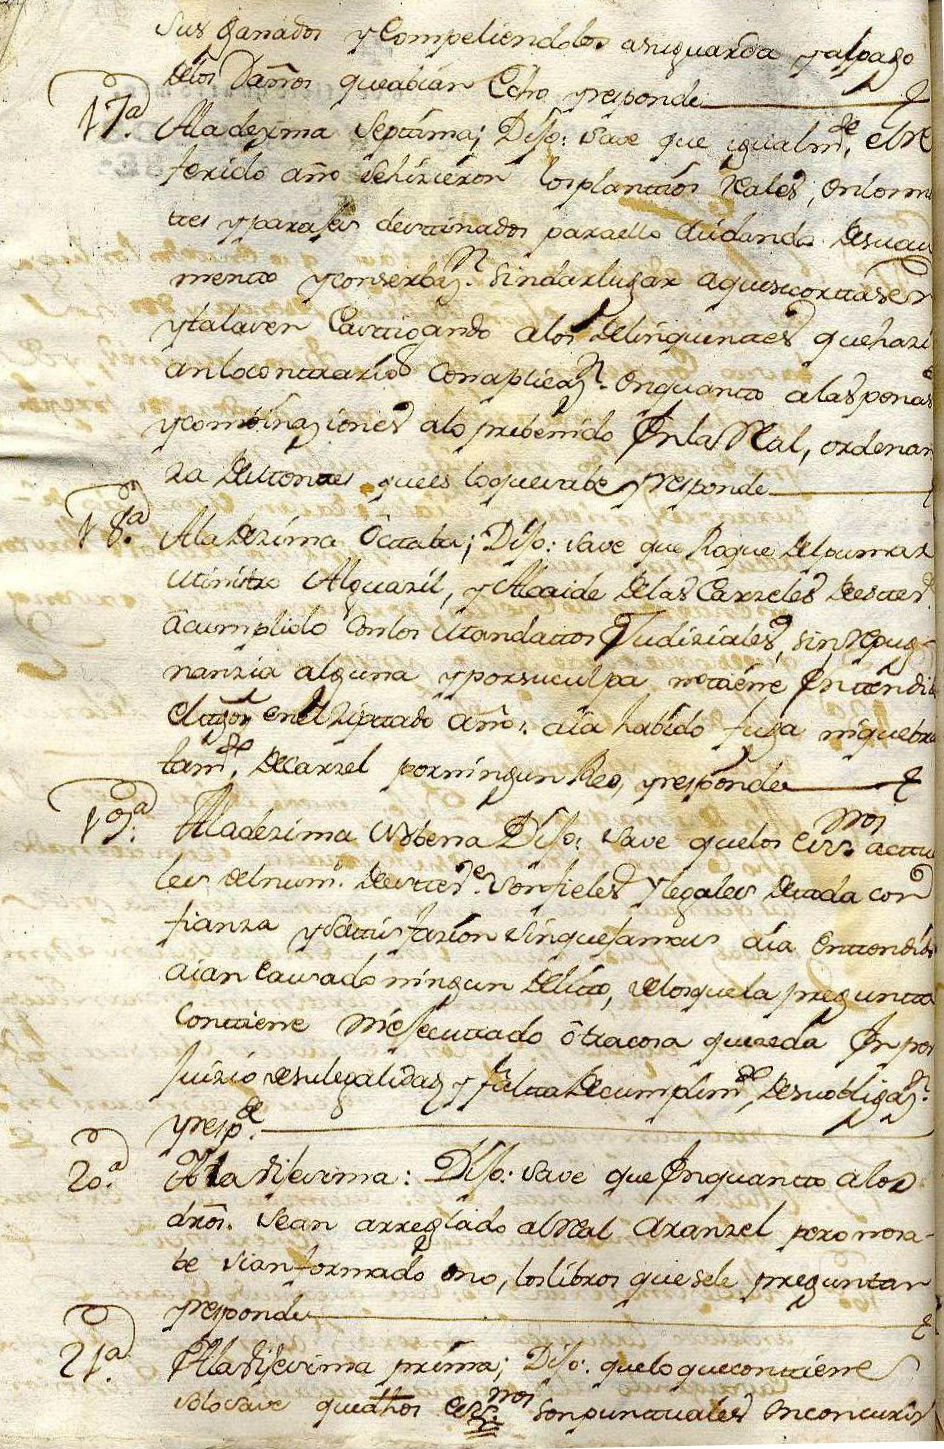 sus ganados y Compeliendolos asuguarda yalpago
delos Daños queabian Echo yresponde
17ª. Aladezma Septima; Dijo: save que igualmte. elRe
ferido año sehizieron losplanttios Reales, enlosmo
ttes yparajes desttinados paraello cuidando desuau
mentto yconserbazn. sindarlugar aquesecorttasen
yttalasen Casttigando alos delinquenttes quehazi
anlocontrario Conaplicazn. enquantto alaspenas
yconminaziones alo prebenido EnlaReal, ordenan
za demontes quees loquesabe yresponde
18ª. AlaDezima Octtaba; Dijo: save que Roque delpumar
Ministro Alguazil, y Alcaide delas Carzeles deestta
acumplido Conlos Mandattos Judiziales, sinRepug-
nanzia alguna yporsuculpa, nottiene Enttendido
eltesgo enelZittado año: aia habido fuga niquebran
tamte. decarzel porningun Reo, yresponde
19ª. Aladezima Nobena Dijo: save quelos essnos. acttua
les delnumo. deestta sonfieles ylegales detoda con
fianza ysattisfazion sinquejamas aia enttendido
aian Causado ningun delitto, delosquela preguntta
Conttiene niejecuttado ôtracosa queceda En per
juizio desulegalidad y falttadecumplimto. desuobligazn.
yrespde.
20ª. Ala Vijesima: Dijo: save que Enquantto alos
dros. sean arreglado alReal aranzel pero nosa-
be sianformado ono, loslibros quesele preguntan
yresponde
21ª. AlaVijesima prima; Dijo: queloqueconttiene
solosave quedhos essnos. sonpunttuales enconcurrir